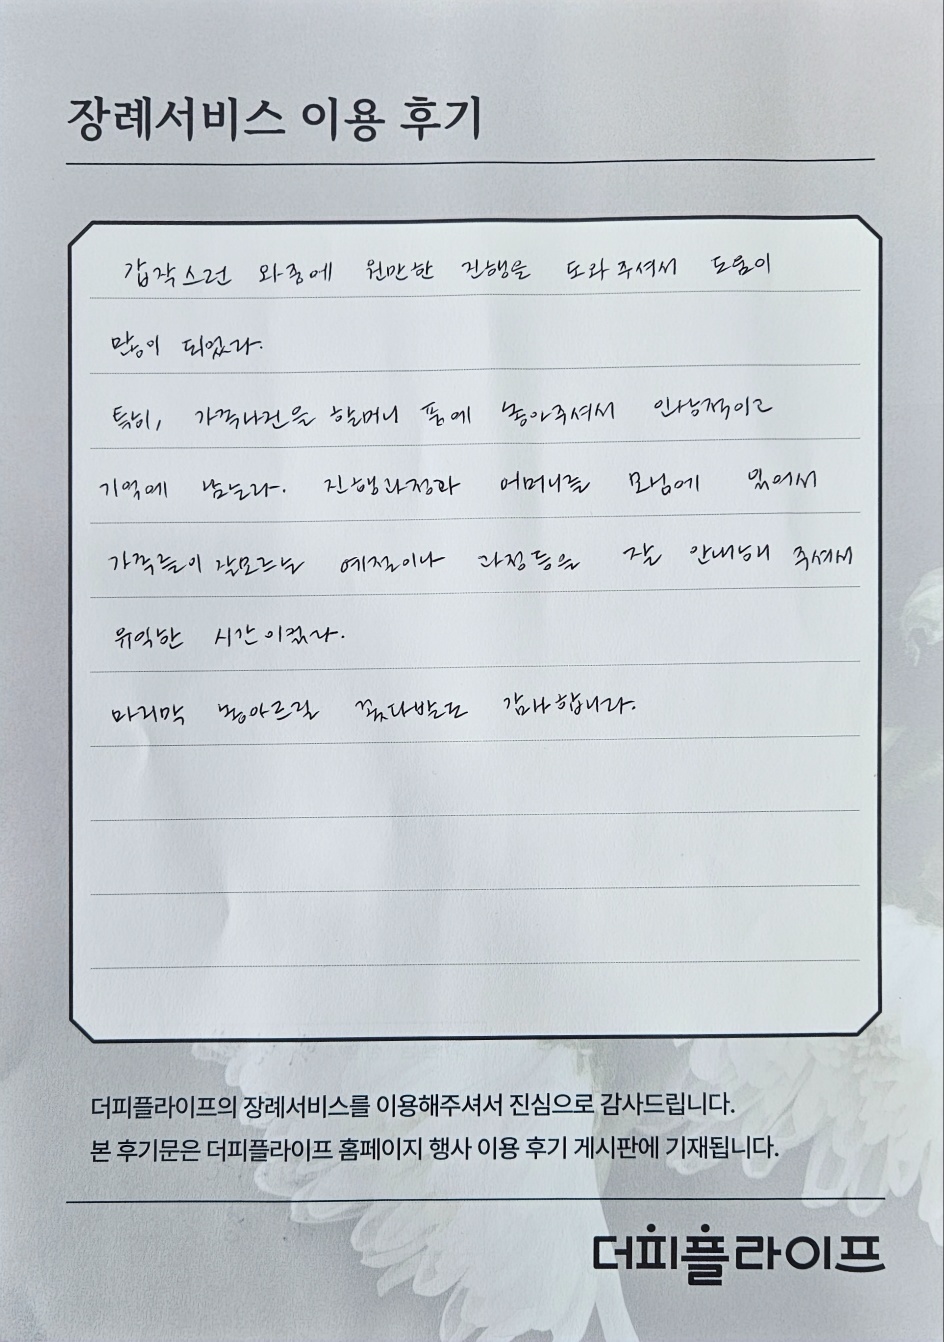 장례서비스 이용 후기
갑작스런 와중에 원만한 진행을 도와주셔서 도움이
많이 되었다.
특히, 가족사진을 할머니 품에 놓아주셔서 인상적이고
기억에 남는다. 진행과정과 어머니를 모심에 있어서
가족들이 잘모르는 예절이나 과정등을 잘 안내해 주셔서
유익한 시간이었다.
마지막 놓아드릴 꽃다발도 감사합니다.
더피플라이프의 장례서비스를 이용해주셔서 진심으로 감사드립니다.
본 후기문은 더피플라이프 홈페이지 행사 이용 후기 게시판에 기재됩니다.
더피플라이프